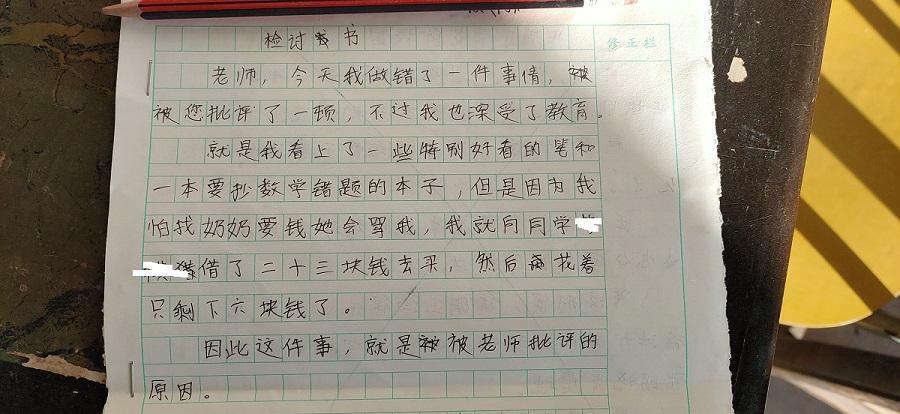 检讨书
修正栏
老师，今天我做错了一件事情，被
被您批评了一顿，不过我也深受了教育。
就是我看上了一些特别好看的笔和
一本要抄数学错题的本子，但是因为我
怕找奶奶要钱她会骂我，我就向同学
借了二十三块钱去买，然后再找着
只剩下六块钱了。
因此这件事，就是被老师批评的
原因。